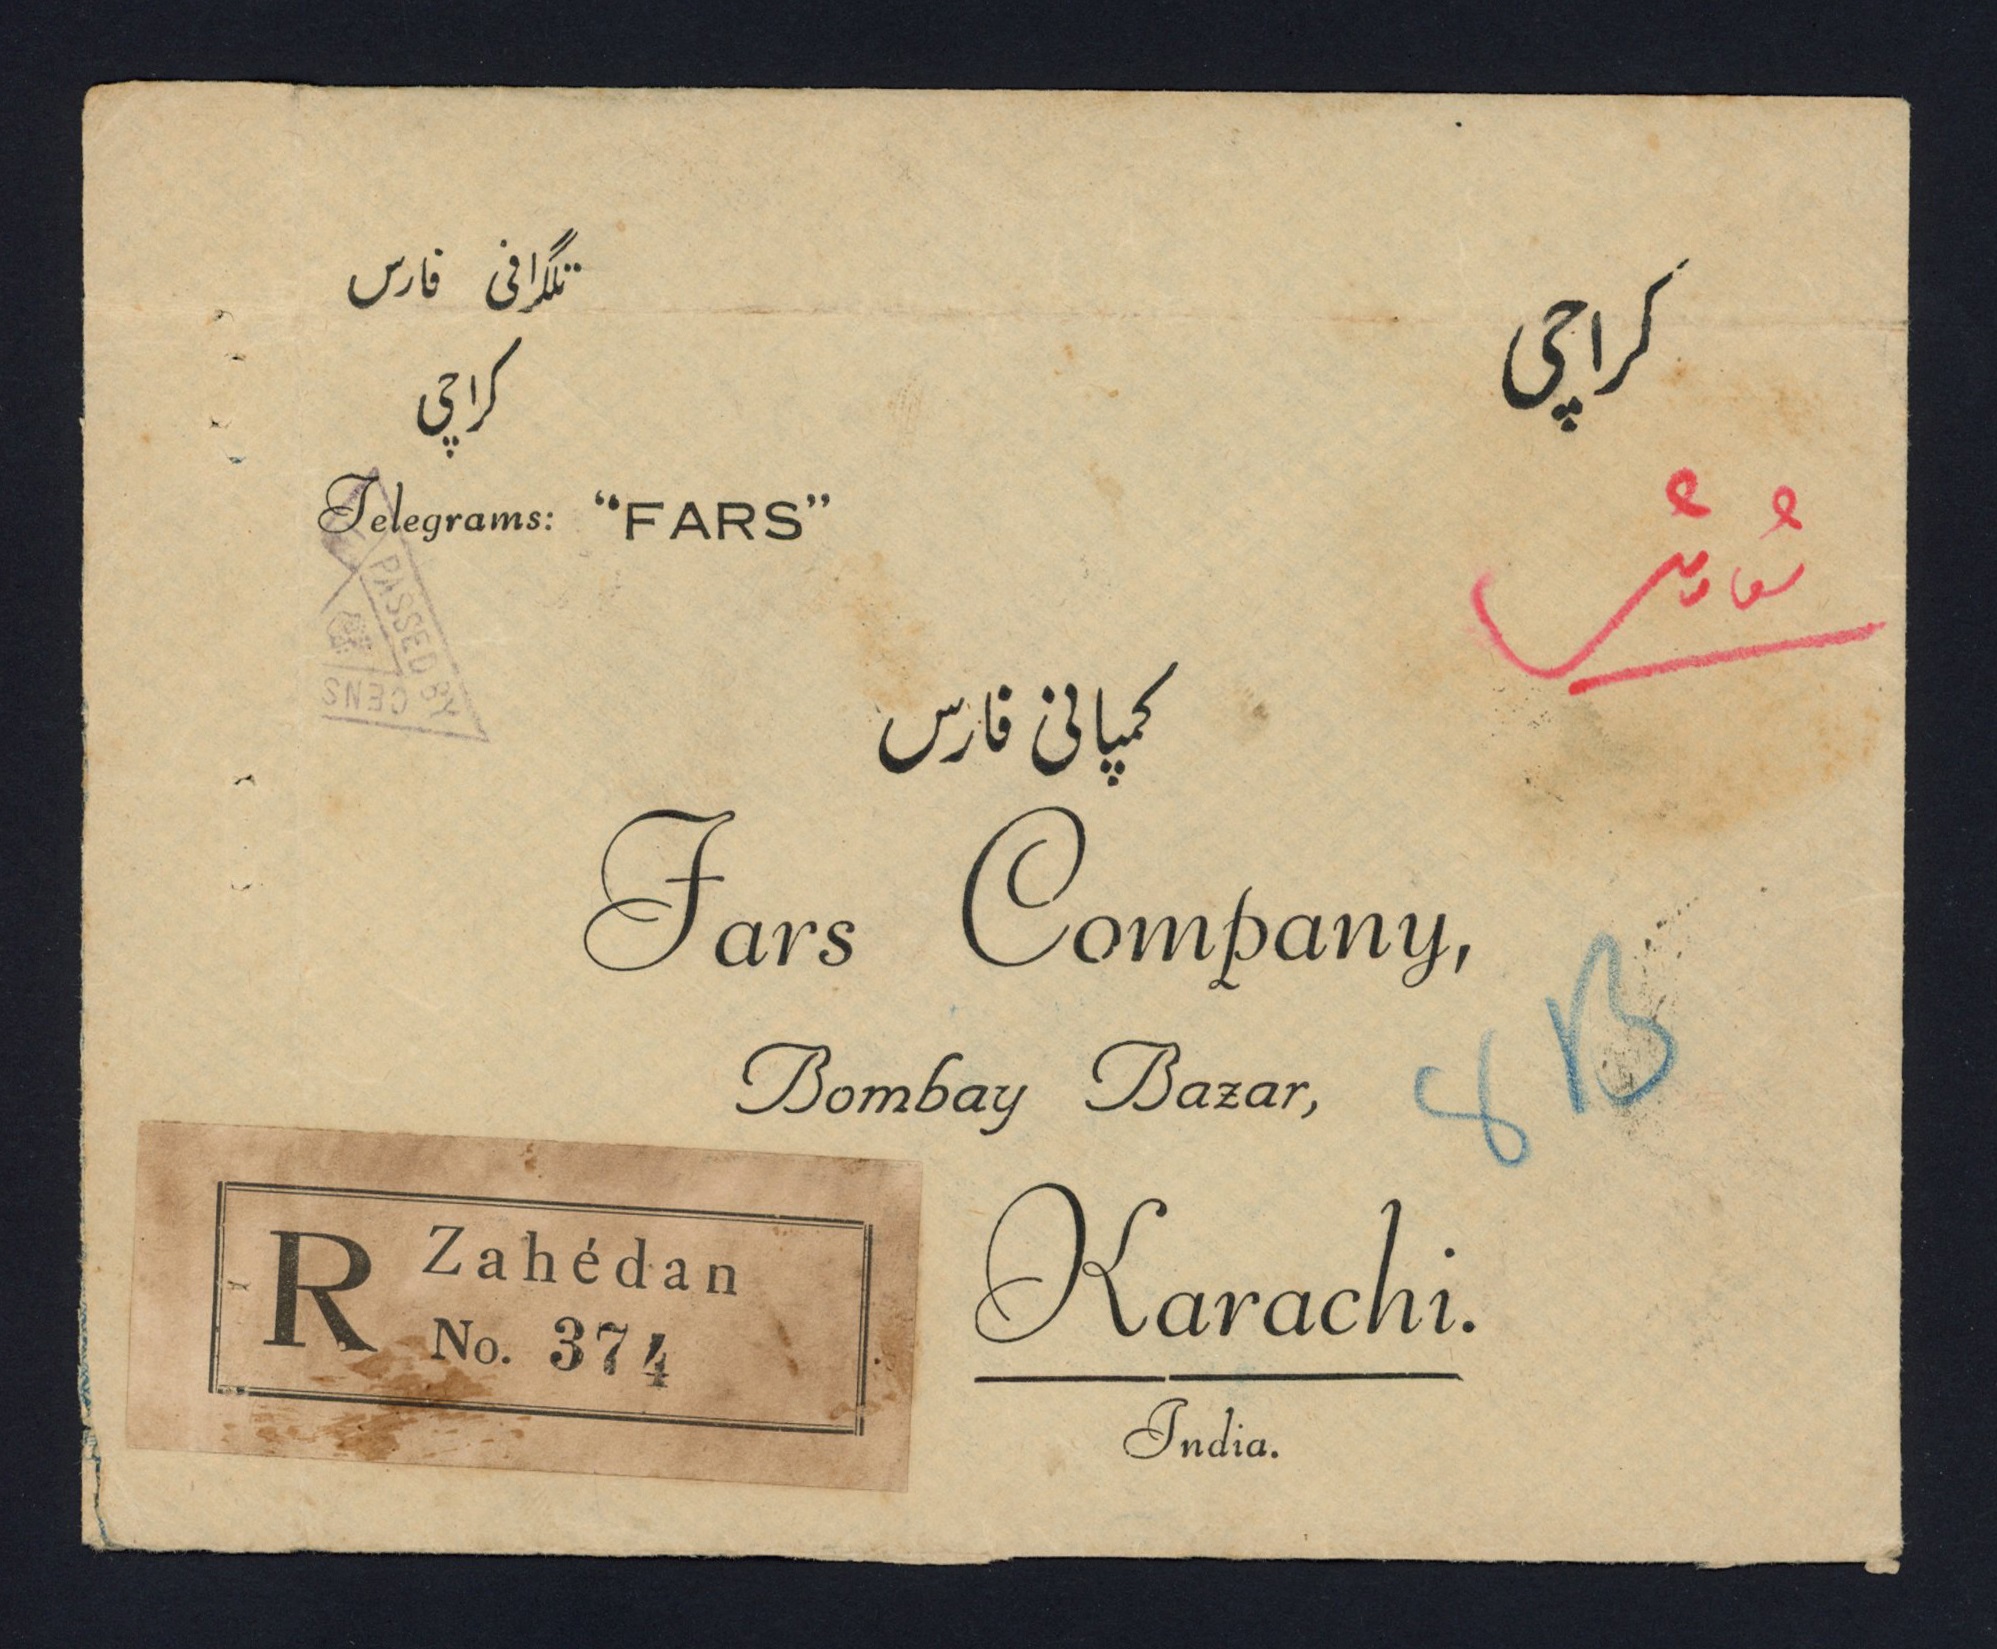 تلگرافی فارس
کراچی
کراچی
Telegrams: "FARS"
PASSED BY
CENS
سفارشی
کمپانی فارس
Fars Company,
Bombay Bazar,
8 B
Karachi.
India.
R Zahédan
No. 374